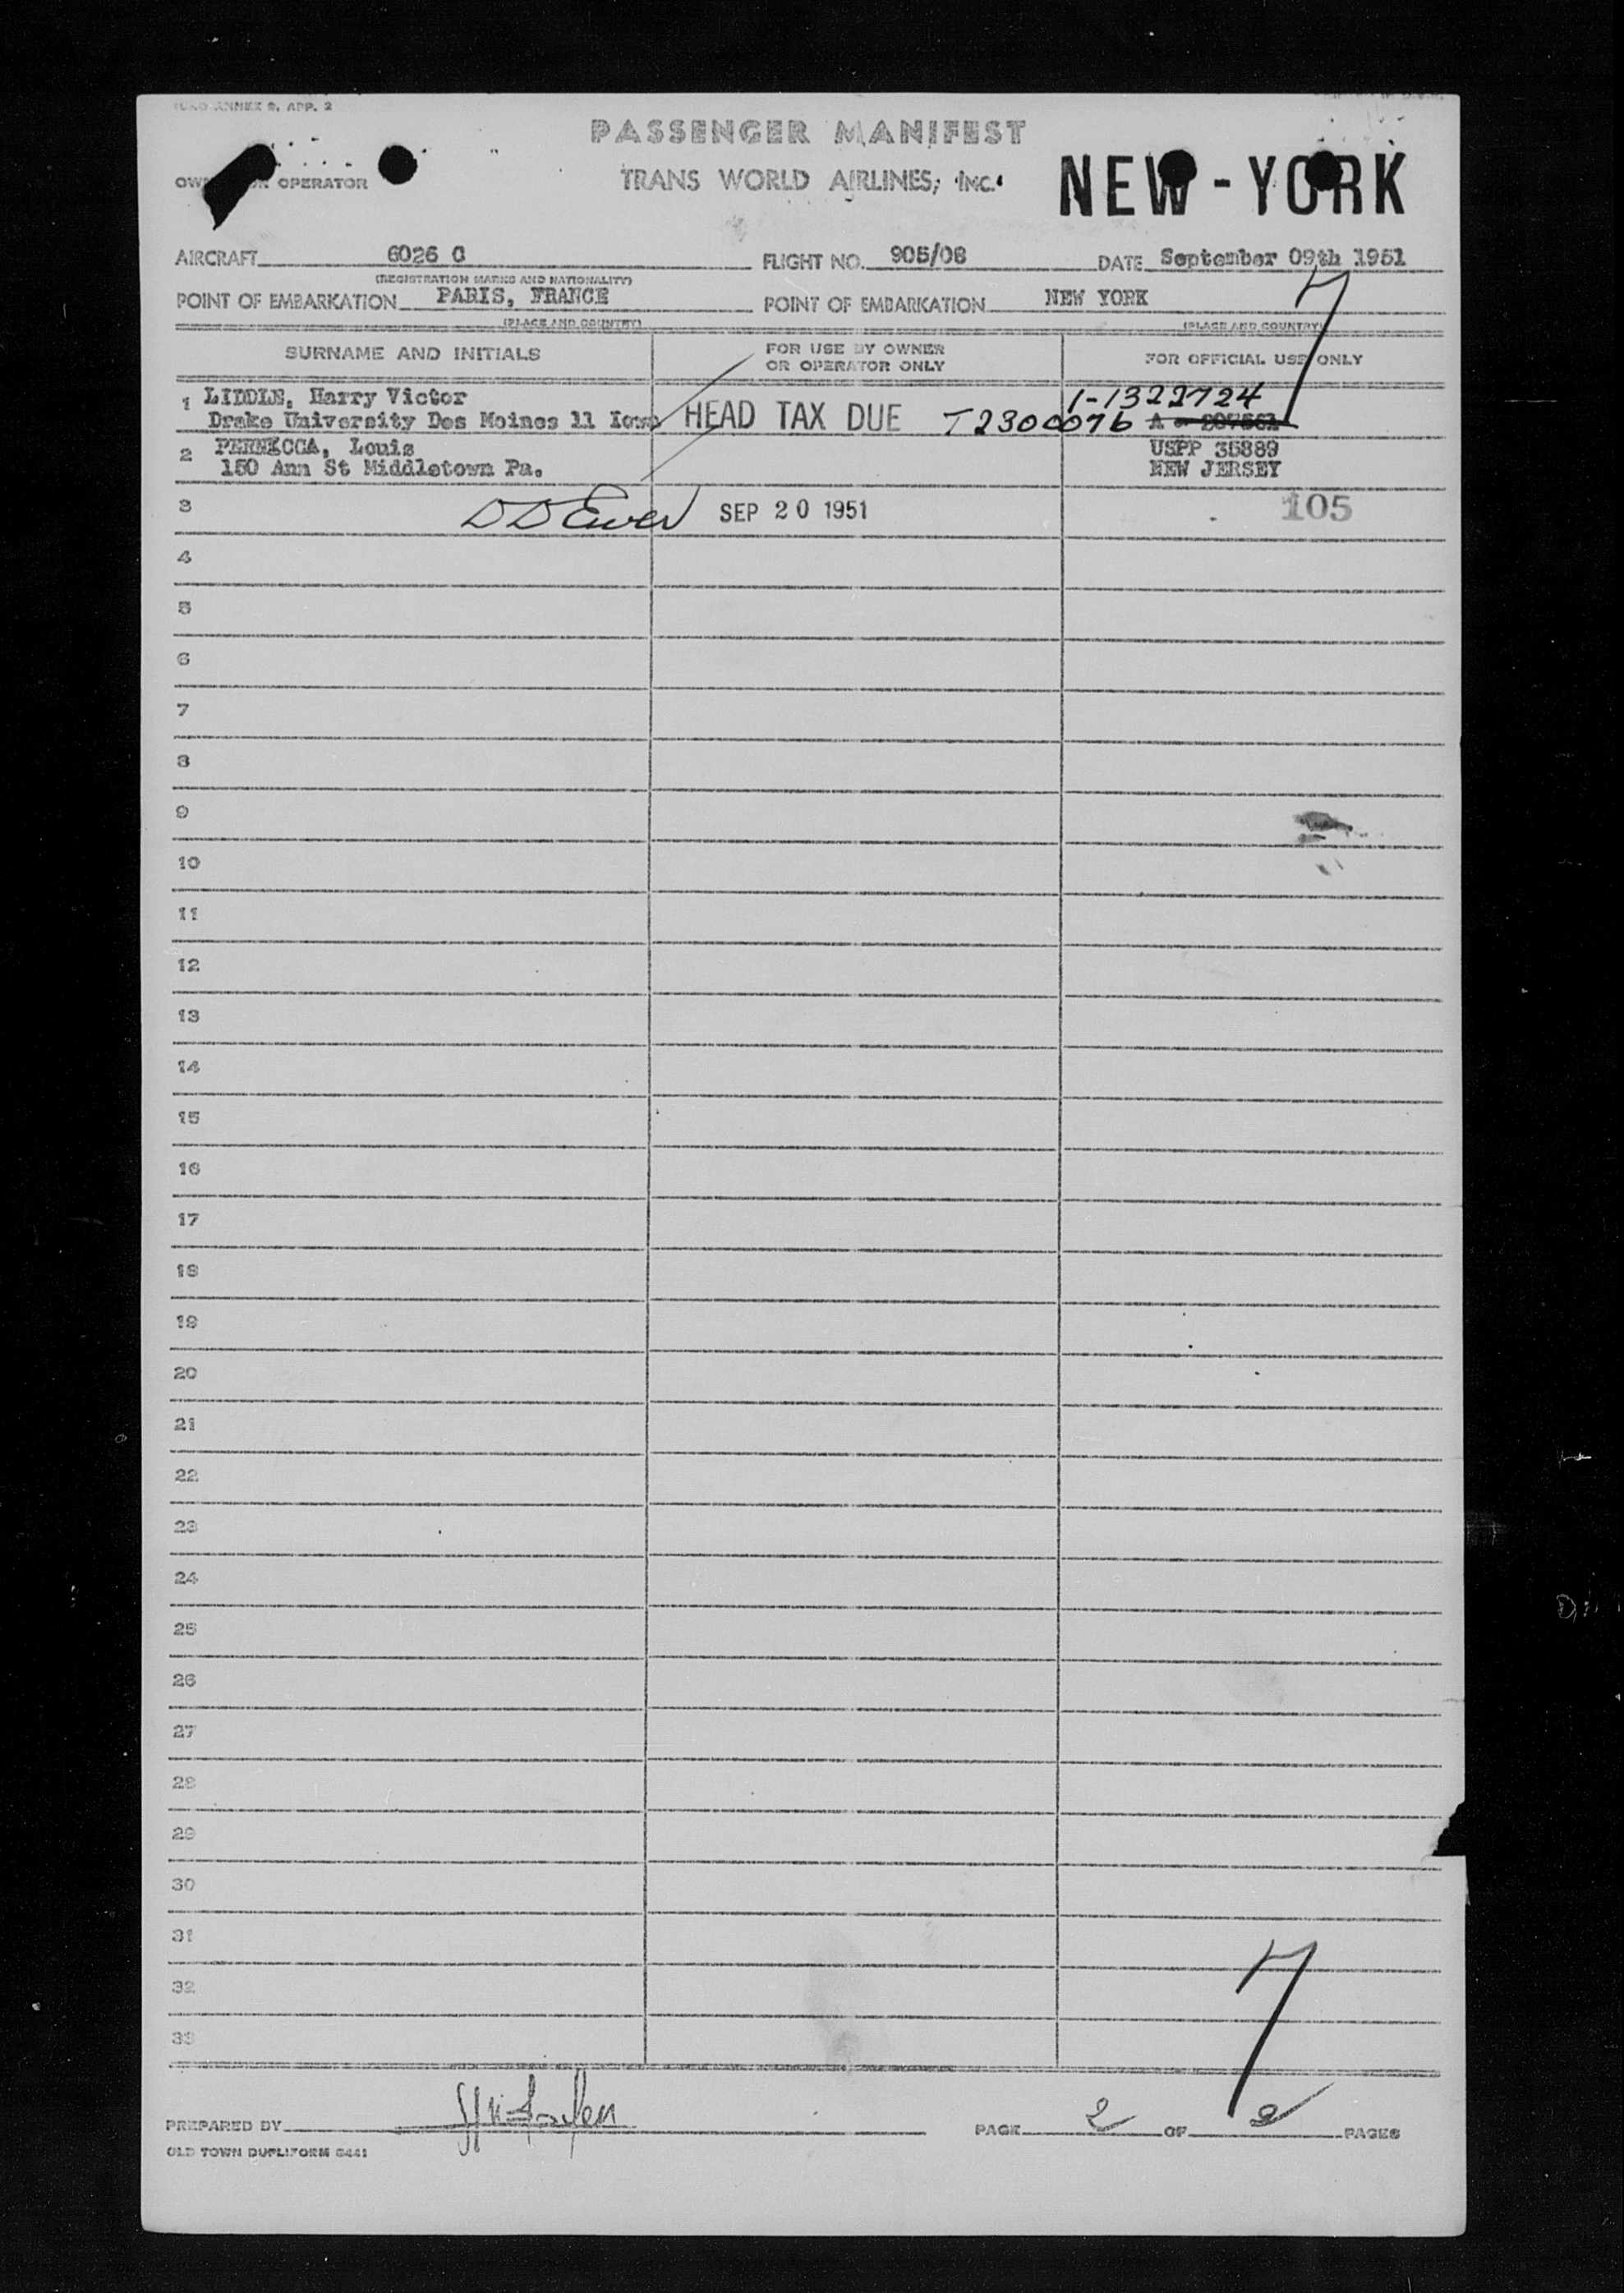 ANNEX 9, APP. 2
PASSENGER MANIFEST
OPERATOR
TRANS WORLD AIRLINES, INC.
NEW-YORK
AIRCRAFT 6026 C FLIGHT NO. 905/08 DATE September 09th 1951
(REGISTRATION MARKS AND NATIONALITY)
POINT OF EMBARKATION PARIS, FRANCE POINT OF EMBARKATION NEW YORK
(PLACE AND COUNTRY) (PLACE AND COUNTRY)
SURNAME AND INITIALS FOR USE BY OWNER OR OPERATOR ONLY FOR OFFICIAL USE ONLY
7
1 LIDDLE, Harry Victor 1-1322724
Drake University Des Moines 11 Iowa HEAD TAX DUE T2300076 A
2 Louis USPP 35889
150 Ann St Middletown Pa. NEW JERSEY
3 SEP 20 1951 105
4
5
6
7
8
9
10
11
12
13
14
15
16
17
18
19
20
21
22
23
24
25
26
27
28
29
30
31
32
33
7
PREPARED BY PAGE 2 OF 2 PAGES
OLD TOWN DUPLIFORM 6441